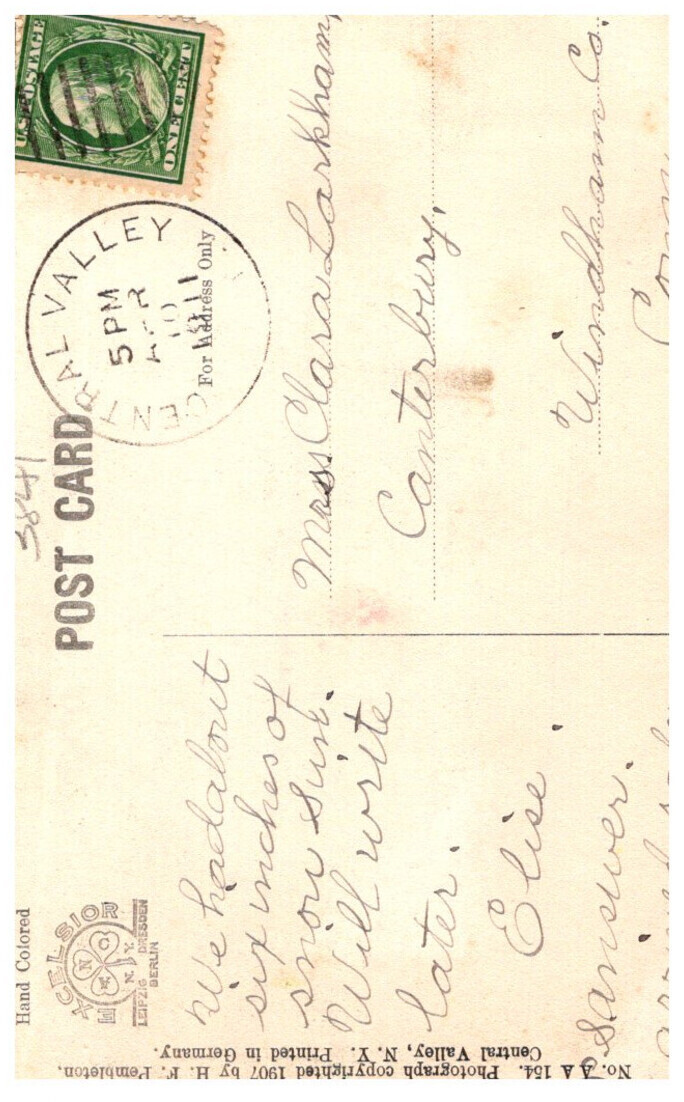 Hand Colored
EXCELSIOR
N.Y.
LEIPZIG DRESDEN
BERLIN
POST CARD
3841
U.S. POSTAGE
ONE CENT
CENTRAL VALLEY
5 PM
APR
10
1911
For Address Only
We had about
six inches of
snow Sun.
Will write
later.
Elise.
answer.
Mrss Clara Larkham,
Canterbury,
Windham Co.
Conn
No. A A 154. Photograph copyrighted 1907 by H. F. Pembleton,
Central Valley, N. Y. Printed in Germany.